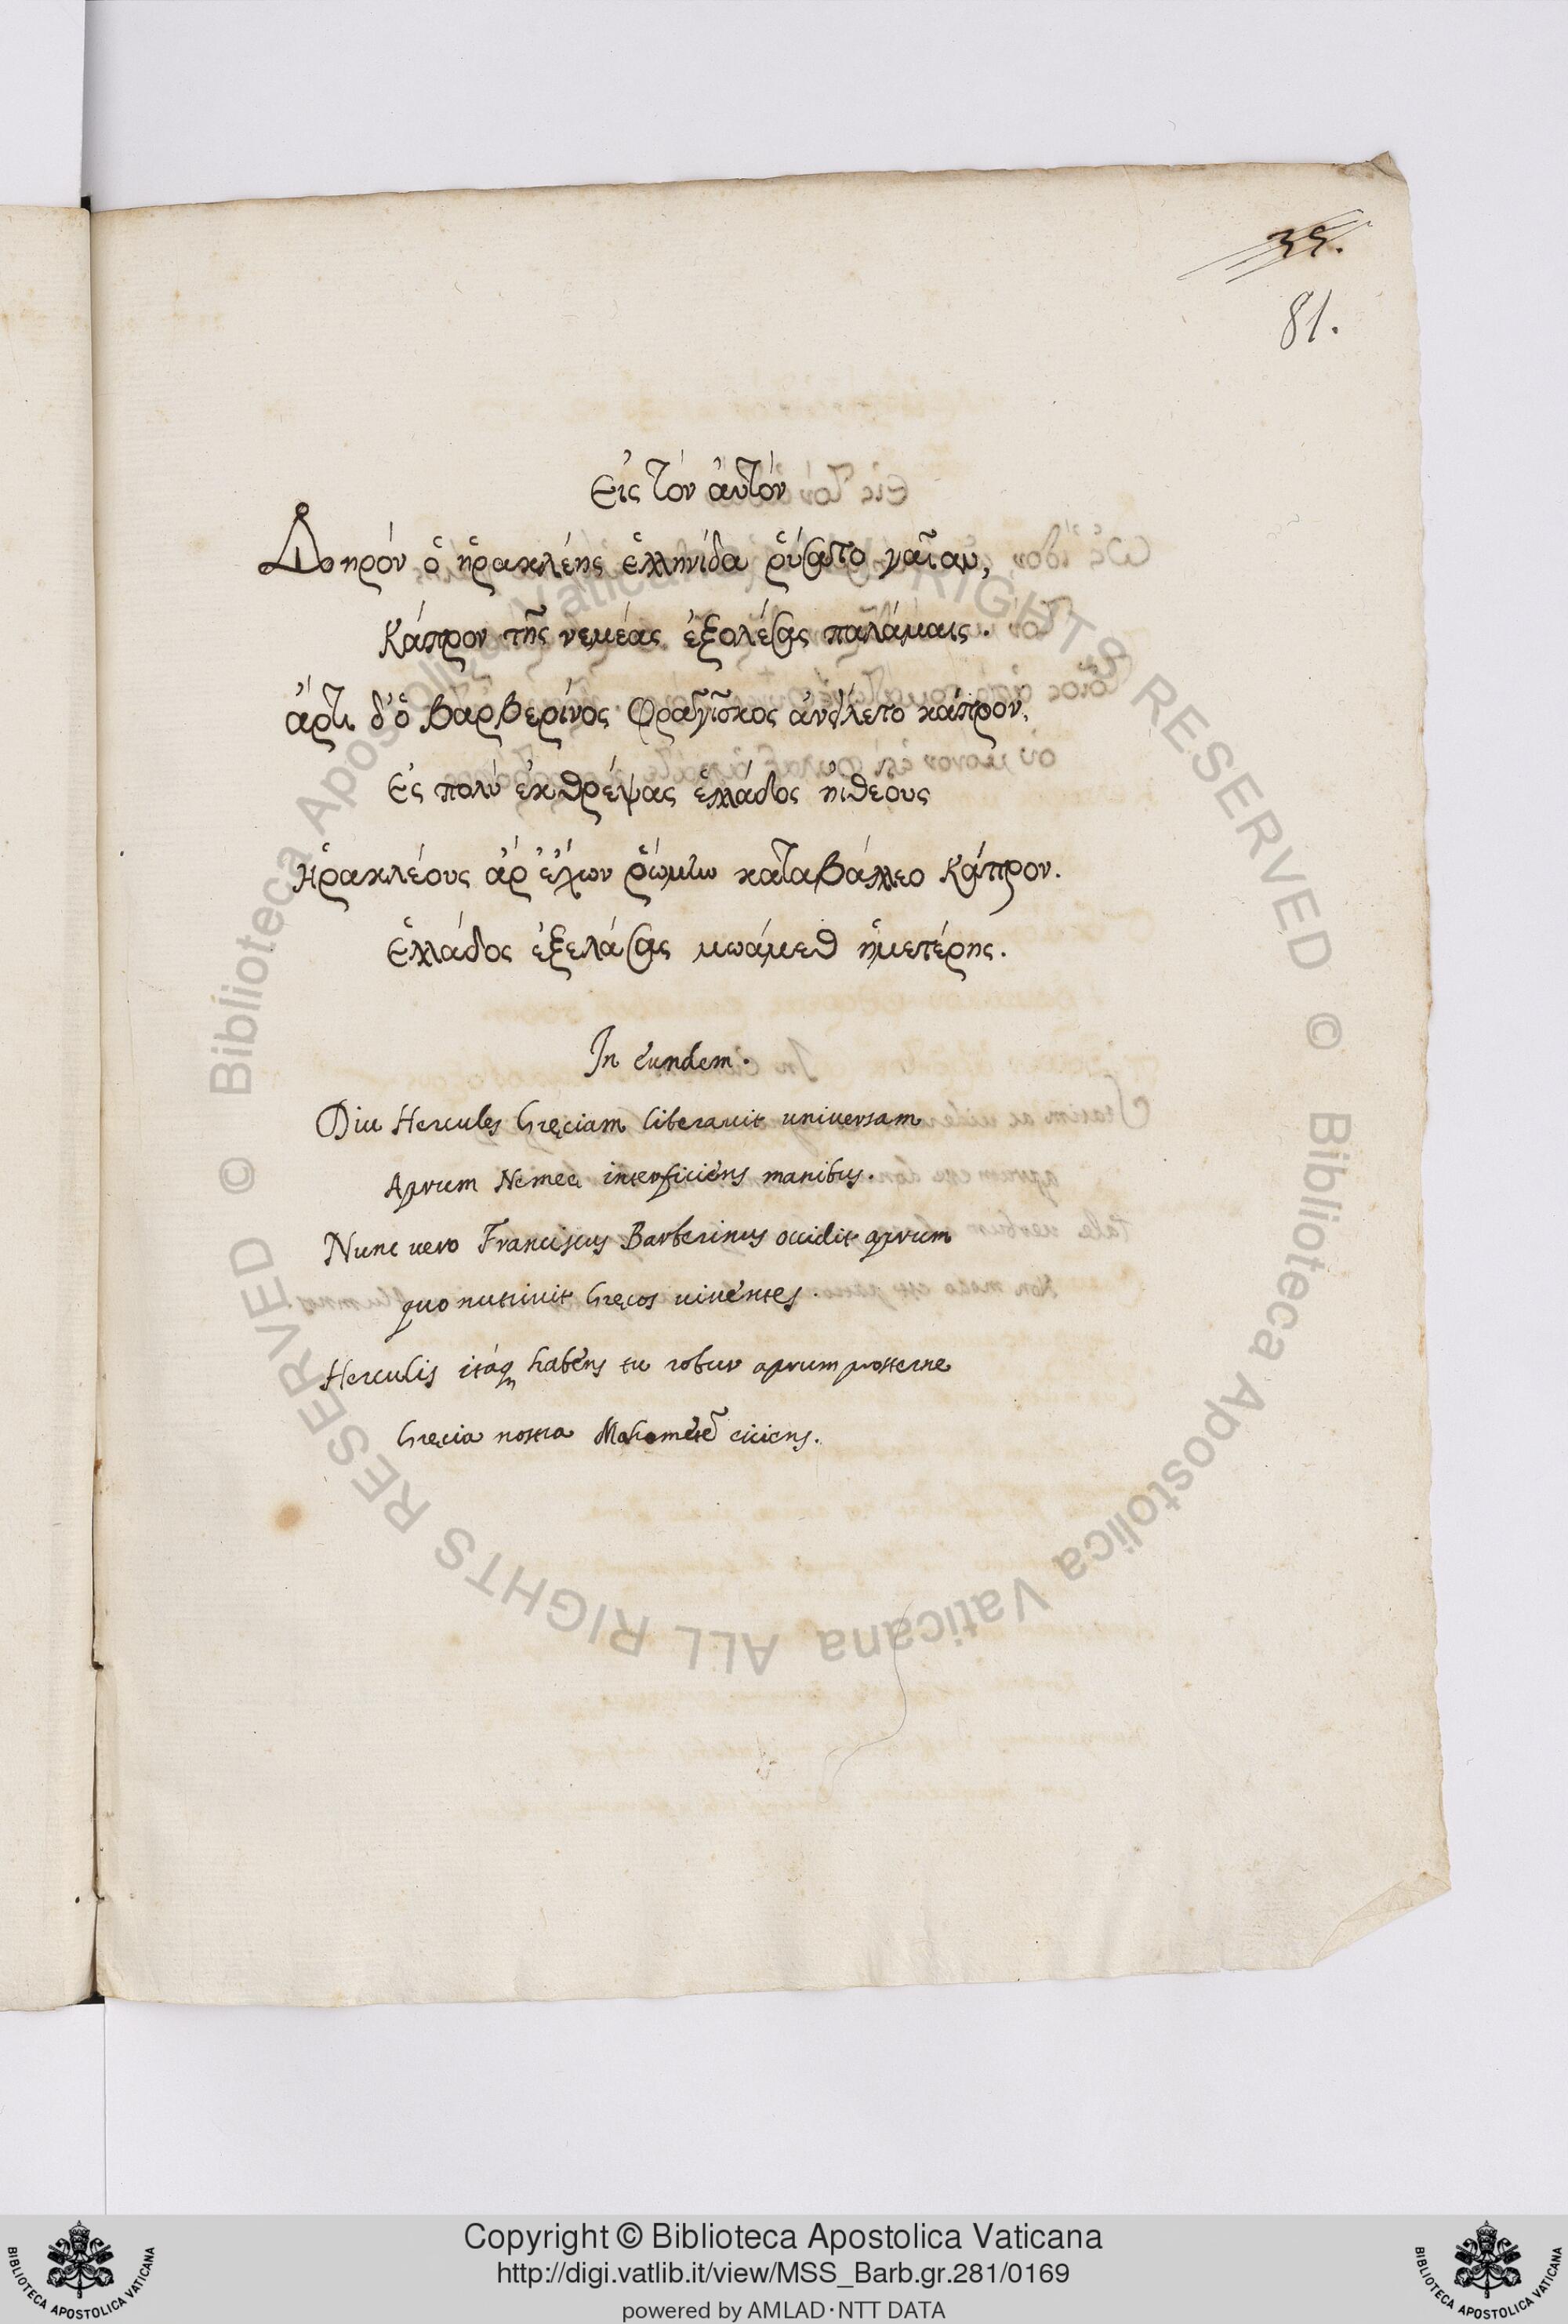 35.
81.
Εἰς τὸν ἀυτόν
Δηρόν ὁ ἡρακλέης ἑλληνίδα ῥύσατο γαῖαν,
Κάπρον τῆς νεμέας ἐξολέσας παλάμαις.
ἄρτι δ' ὁ Βαρβερίνος Φραγγίσκος κάπρον,
Ες πολύ ἐκθρέψας ἑλλάδος ἠιθέους
Ηρακλέους ἀρ' ἔχων ῥώμην καταβάλλεο Κάπρον.
Ελλάδος ἐξελάσας μωάμεθ ἡμετέρης.
In eundem.
Diu Hercules Gręciam liberauit universam
Aprum Nemeę interficiens manibus.
Nunc uero Franciscus Barberinus occidit aprum
quo nutriuit Gręcos uiuentes.
Herculis itaq habens tu robur aprum prosterne
Gręcia nostra Mahometẽ eiiciens.
© Biblioteca Apostolica Vaticana ALL RIGHTS RESERVED
Copyright © Biblioteca Apostolica Vaticana
http://digi.vatlib.it/view/MSS_Barb.gr.281/0169
powered by AMLAD·NTT DATA
BIBLIOTECA APOSTOLICA VATICANA
BIBLIOTECA APOSTOLICA VATICANA